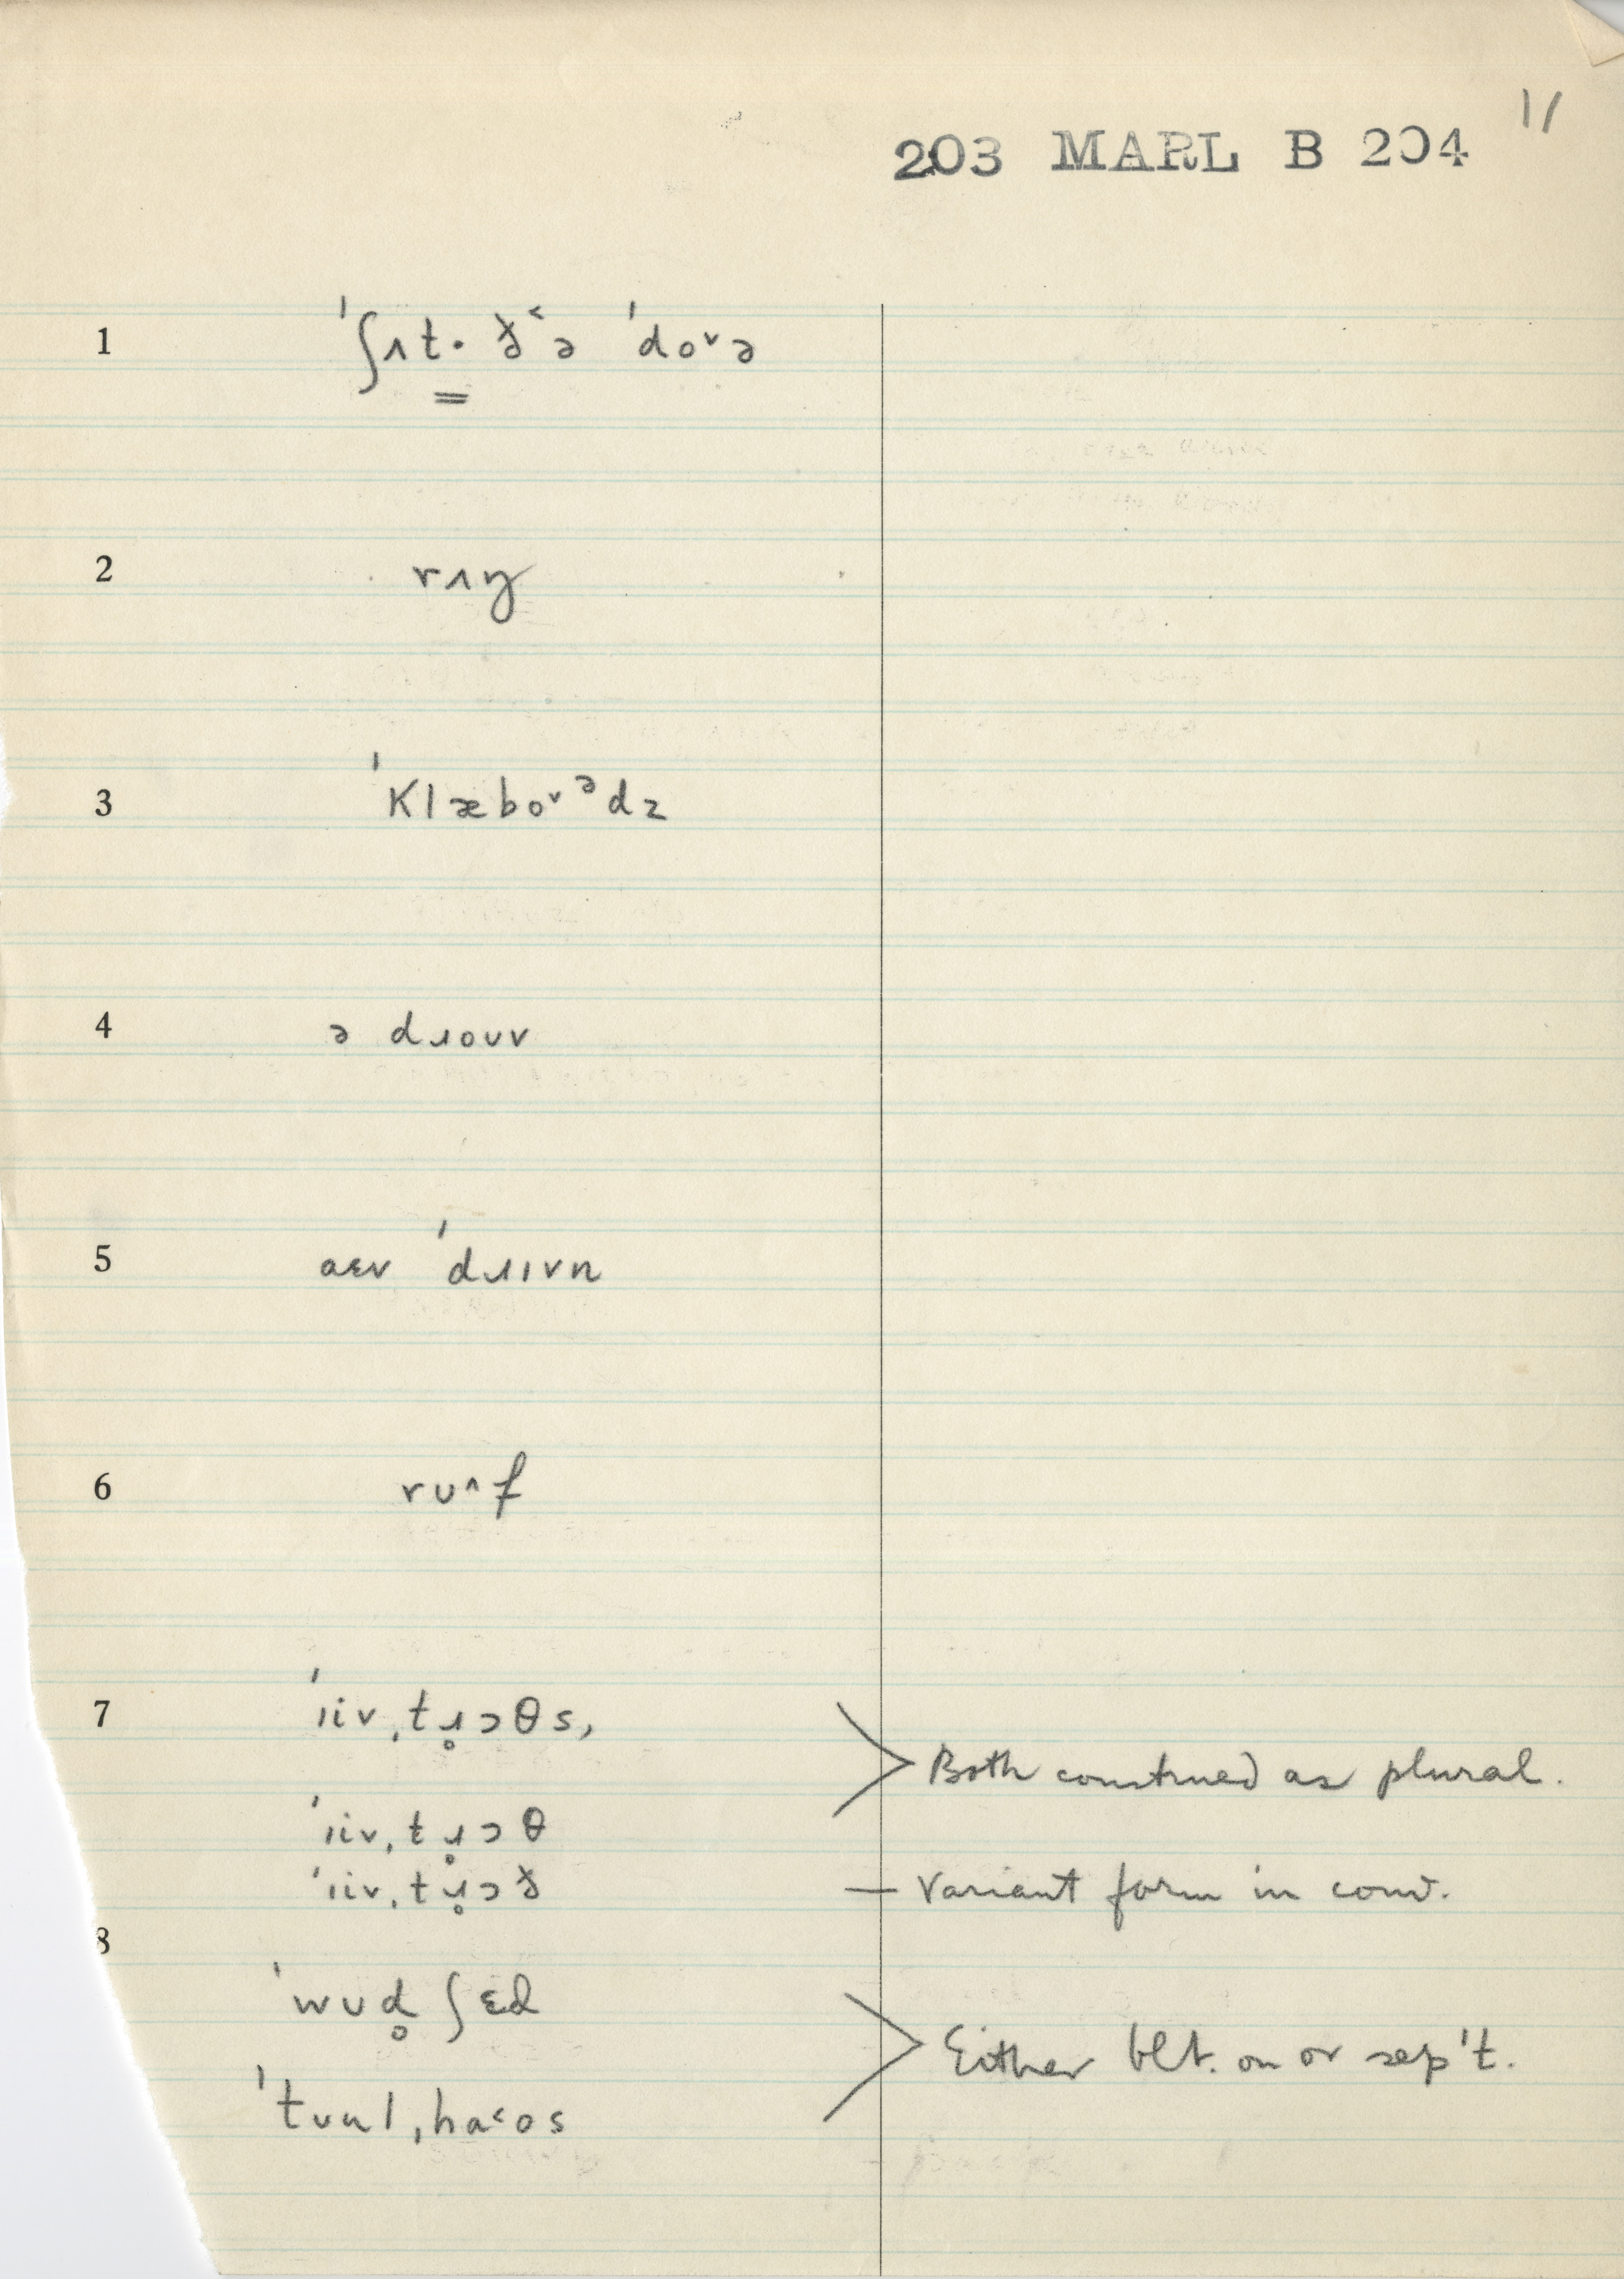 11
203 MARL B 204
1 ˈʃʌt· ð˂ə ˈdo˅ə
2 rʌŋ
3 ˈklæbo˅ᵊdz
4 ə dɹouv
5 aɛv ˈdɹɪvn
6 ru˄f
7 ˈiiv,tɹ̥ɔθs,
Both construed as plural.
ˈiiv,tɹ̥ɔθ
ˈiiv,tɹ̥ɔð — Variant form in conv.
8
ˈwud̥ ʃɛd
Either blt. on or sep't.
ˈtuul,ha˂os